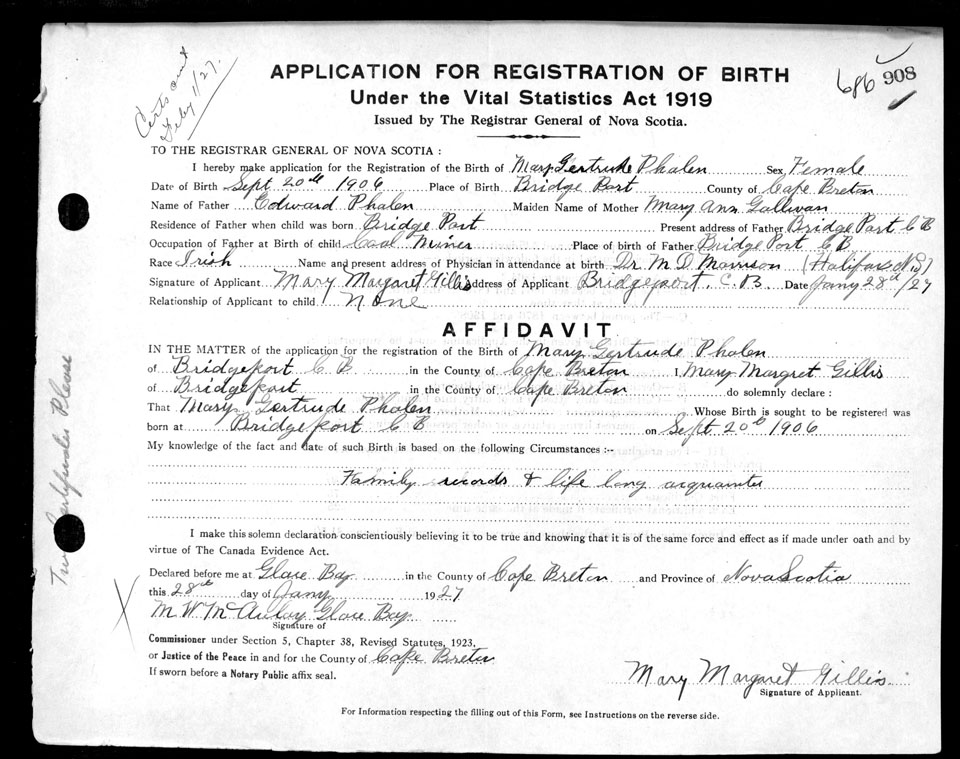 686 908
Certs out
Feby 1/27.
APPLICATION FOR REGISTRATION OF BIRTH
Under the Vital Statistics Act 1919
Issued by The Registrar General of Nova Scotia.
TO THE REGISTRAR GENERAL OF NOVA SCOTIA :
I hereby make application for the Registration of the Birth of Mary Gertrude Phalen Sex Female
Date of Birth Sept 20th 1906 Place of Birth Bridge Port County of Cape Breton
Name of Father Edward Phalen Maiden Name of Mother Mary Ann Gallivan
Residence of Father when child was born Bridge Port Present address of Father Bridge Port C B
Occupation of Father at Birth of child Coal Miner Place of birth of Father Bridge Port C B
Race Irish Name and present address of Physician in attendance at birth Dr. M D Morrison (Halifax N.S)
Signature of Applicant Mary Margaret Gillis Address of Applicant Bridgeport. C.B. Date Jany 28th/27
Relationship of Applicant to child None
AFFIDAVIT
IN THE MATTER of the application for the registration of the Birth of Mary Gertrude Phalen
of Bridgeport C B in the County of Cape Breton I, Mary Margret Gillis
of Bridgeport in the County of Cape Breton do solemnly declare :
That Mary Gertrude Phalen Whose Birth is sought to be registered was
born at Bridgeport C B on Sept 20th 1906
My knowledge of the fact and date of such Birth is based on the following Circumstances :--
Family records & life long
I make this solemn declaration conscientiously believing it to be true and knowing that it is of the same force and effect as if made under oath and by
virtue of The Canada Evidence Act.
Declared before me at Glace Bay in the County of Cape Breton and Province of Nova Scotia
this 28th day of Jany 1927
M. W. McAulay Glace Bay
Signature of
Commissioner under Section 5, Chapter 38, Revised Statutes, 1923,
or Justice of the Peace in and for the County of Cape Breton
If sworn before a Notary Public affix seal.
Mary Margaret Gillis
Signature of Applicant.
For Information respecting the filling out of this Form, see Instructions on the reverse side.
Two Certificates Please